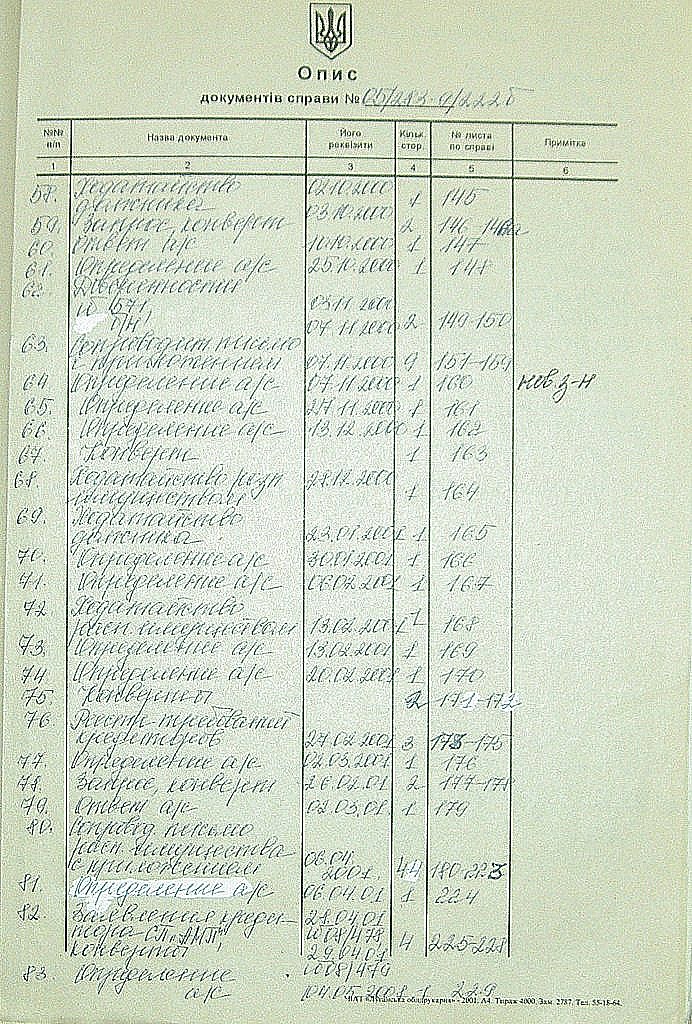 Опис
документів справи № 05/283-9/222б
№№ п/п Назва документа Його реквізити Кільк. стор. № листа по справі Примітка
1 2 3 4 5 6
58. Ходатайство 02.10.2000
должника 03.10.2000 1 145
59. Запрос, конверт 2 146-146а
60. Ответ а/с 10.10.2000 1 147
61. Определение а/с 25.10.2000 1 148
62. Доверенности
№ 571, 03.11.2000
б/н 07.11.2000 2 149-150
63. Сопроводит. письмо
с приложением 07.11.2000 9 151-159
64. Определение а/с 07.11.2000 1 160
65. Определение а/с 27.11.2000 1 161
66. Определение а/с 13.12.2000 1 162
67. Конверт 1 163
68. Ходатайство расп. 28.12.2000
имуществом 1 164
69. Ходатайство
должника 23.01.2001 1 165
70. Определение а/с 30.01.2001 1 166
71. Определение а/с 06.02.2001 1 167
72. Ходатайство
расп. имуществом 13.02.2001 1 168
73. Определение а/с 13.02.2001 1 169
74. Определение а/с 20.02.2001 1 170
75. Конверты 2 171-172
76. Реестр требований
кредиторов 27.02.2001 3 173-175
77. Определение а/с 02.03.2001 1 176
78. Запрос, конверт 26.02.01 2 177-178
79. Ответ а/с 02.03.01. 1 179
80. Сопровод. письмо
расп. имущества 06.04.
с приложением 2001. 44 180-223
81. Определение а/с 06.04.01 1 224
82. Заявления креди- 28.04.01
тора СП "АМП" 1008/478
конверты 29.04.01 4 225-228
83. Определение 1008/479
а/с 04.05.2001 1 229
- 2001. А4. Тираж 4000. Зам. 2787. Тел. 55-18-64.